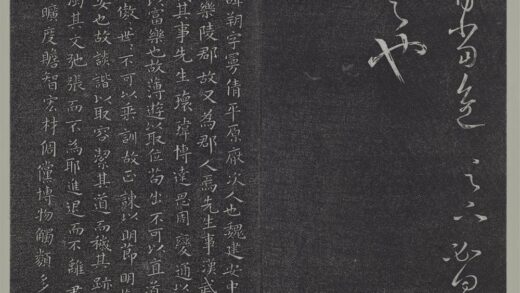 也
諱朔字曼倩平原厭次人也魏建安中
樂陵郡故又為郡人焉先生事漢武
其事先生瓌瑋博達思周變通以
以富樂也故薄遊以取位苟出不可以直道
傲世〻不可以垂訓故正諫以明節明
安也故談諧以取容潔其道而穢其跡
濁其文弛張而不為耶進退而不離
曠度贍智宏材倜儻博物觸類多